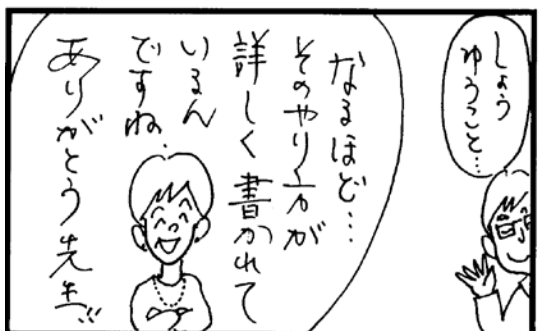 しょう
ゆうこと…
なるほど…
そのやり方が
詳しく書かれて
いるん
ですね.
ありがとう先生!!